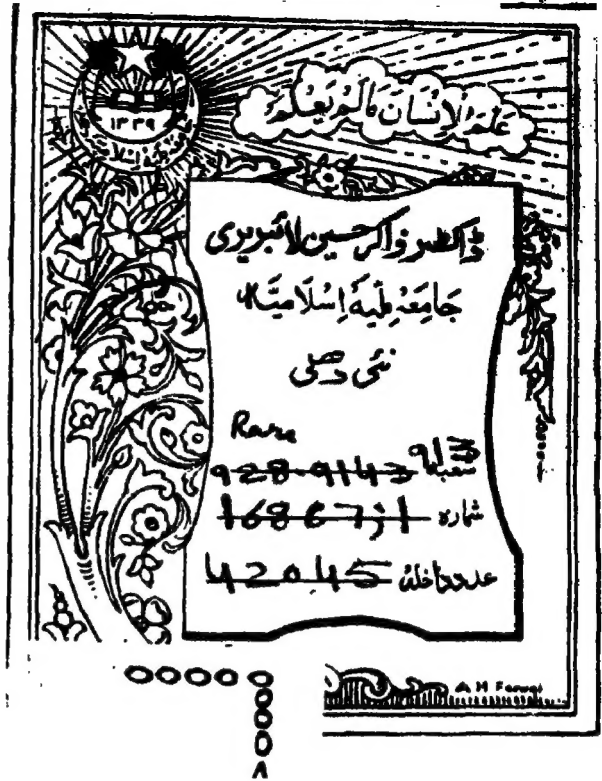 ۱۳۳۹
عَلَّمَ الْاِنْسَانَ مَالَمْ یَعْلَمْ
ڈاکٹر ذاکر حسین لائبریری
جَامِعَہ مِلّیہ اِسْلَامیّہ
نئی دھلی
Rare
913
شعبہ 928.9143
شمارہ 168671
عدد داخلہ 42045
A H Farooqi